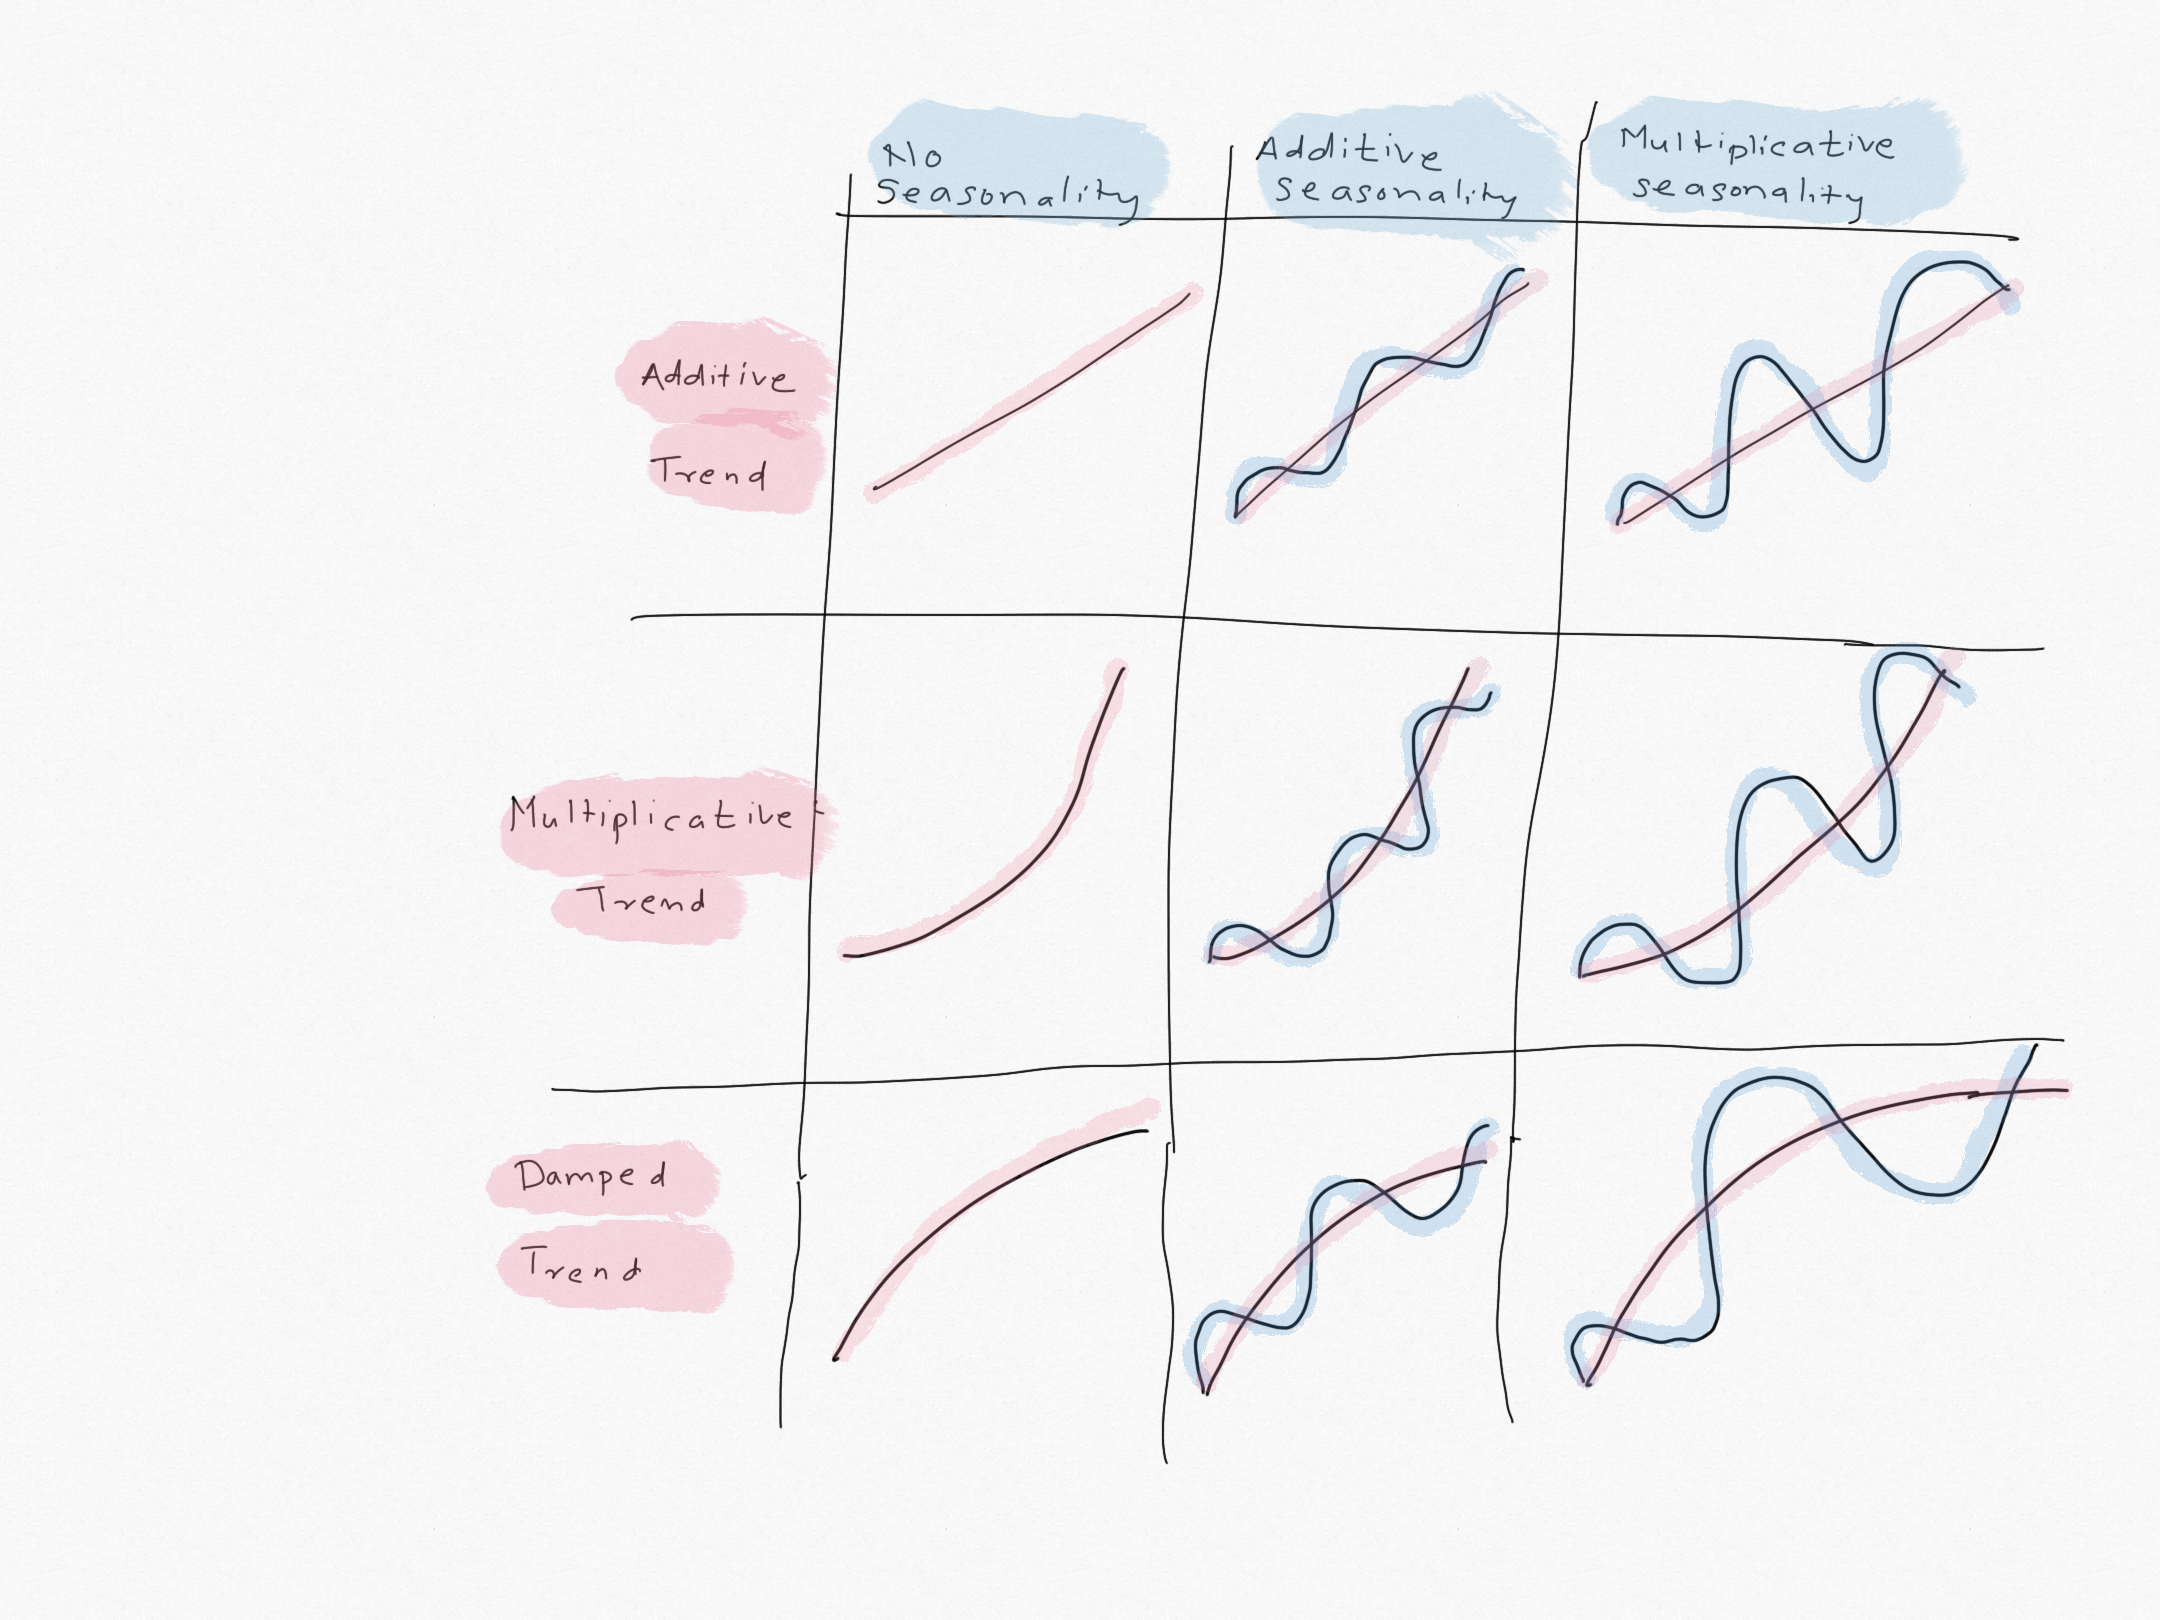 No
Seasonality
Additive
seasonality
Multiplicative
seasonality
Additive
Trend
Multiplicative
Trend
Damped
Trend